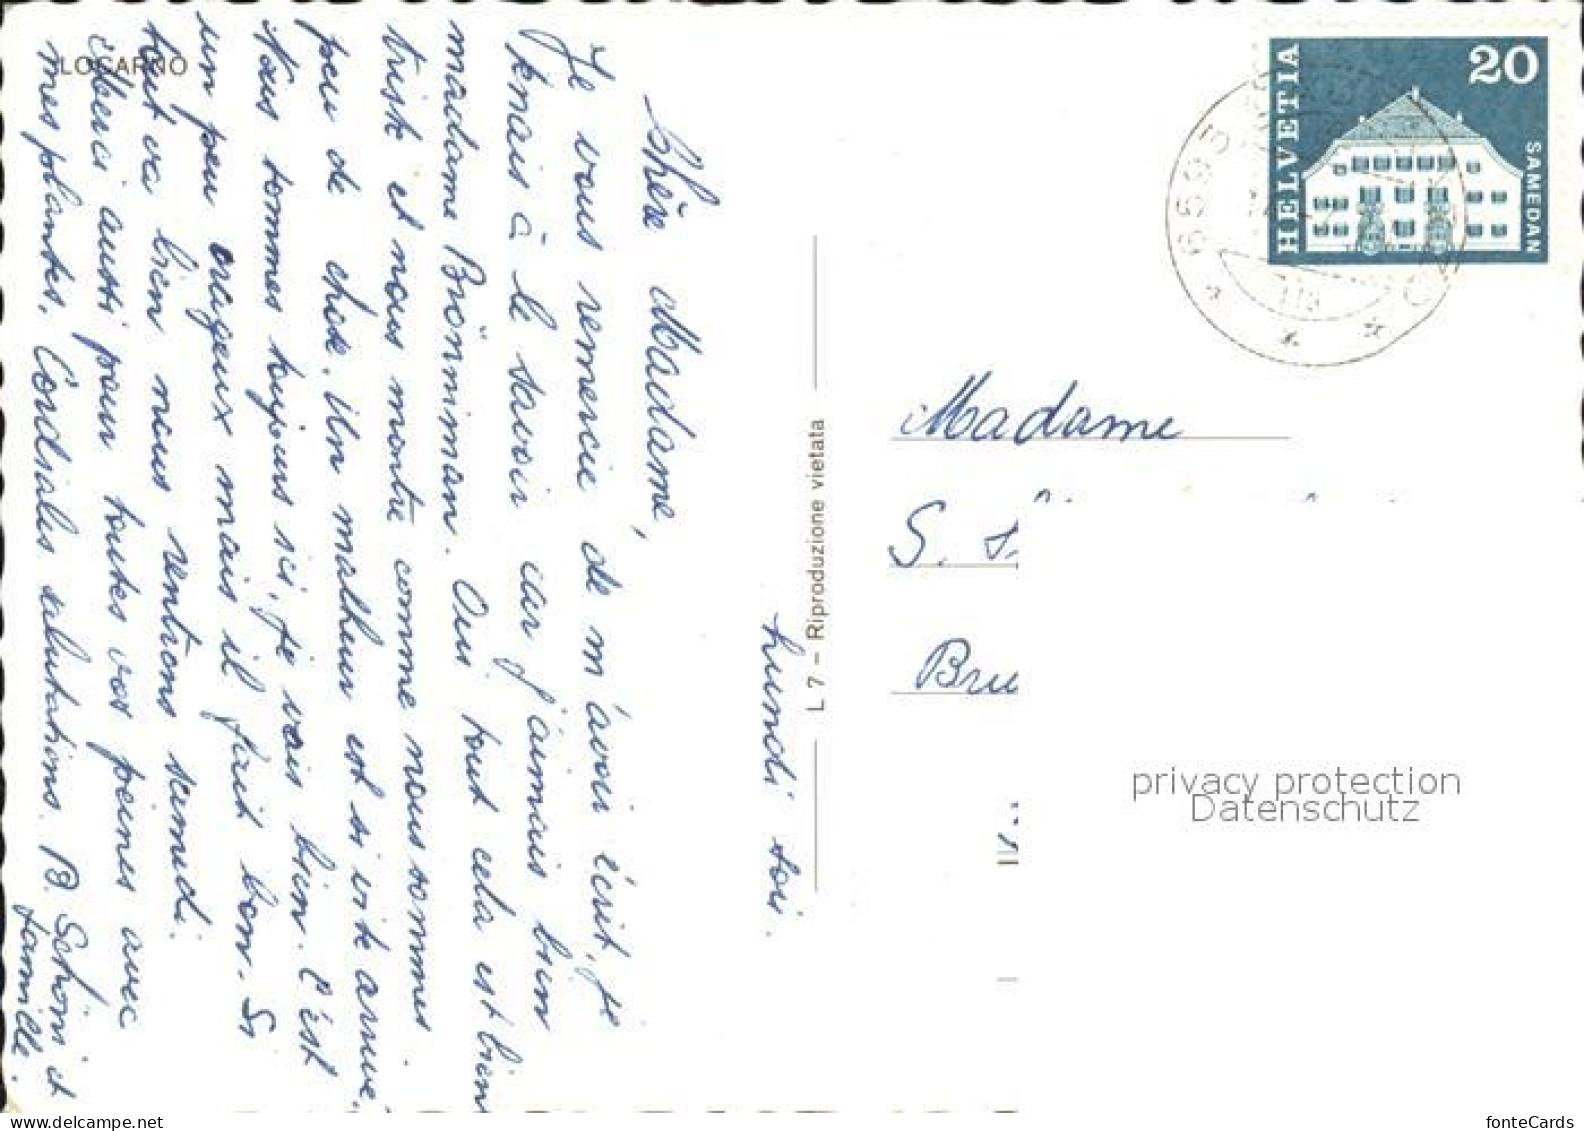 LOCARNO
lundi soir.
Chère Madame,
Je vous remercie de m'avoir écrit, je
tenais à le savoir car j'aimais bien
madame Brönnimann. Oui tout cela est bien
triste et nous montre comme nous sommes
peu de chose. Un malheur est si vite arrivé,
Nous sommes toujours ici, je vais bien. C'est
un peu orageux mais il fait bon. Si
tout va bien nous rentrons samedi.
Merci aussi pour toutes vos peines avec
mes plantes. Cordiales salutations. B. Schöni et
famille.
L 7 – Riproduzione vietata
HELVETIA
20
SAMEDAN
6695
Madame
S.
Bru
privacy protection
Datenschutz
fonteCards